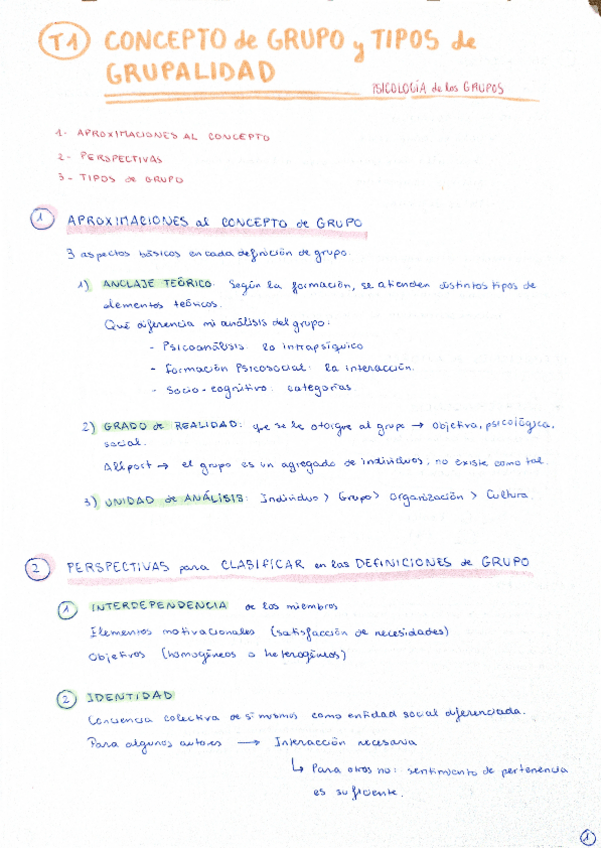 T1 CONCEPTO de GRUPO y TIPOS de
GRUPALIDAD
PSICOLOGÍA de los GRUPOS
1- APROXIMACIONES AL CONCEPTO
2- PERSPECTIVAS
3- TIPOS de GRUPO
1 APROXIMACIONES al CONCEPTO de GRUPO
3 aspectos básicos en cada definición de grupo.
1) ANCLAJE TEÓRICO. Según la formación, se atienden distintos tipos de
elementos teóricos.
Qué diferencia mi análisis del grupo:
- Psicoanálisis: lo intrapsíquico
- Formación Psicosocial: la interacción.
- Socio-cognitivo: categorías.
2) GRADO de REALIDAD: que se le otorgue al grupo → objetiva, psicológica,
social.
Allport → el grupo es un agregado de individuos, no existe como tal.
3) UNIDAD de ANÁLISIS: Individuo > Grupo > Organización > Cultura.
2 PERSPECTIVAS para CLASIFICAR en las DEFINICIONES de GRUPO
1 INTERDEPENDENCIA de los miembros
Elementos motivacionales (satisfacción de necesidades)
Objetivos (homogéneos o heterogéneos)
2 IDENTIDAD
Conciencia colectiva de si mismos como entidad social diferenciada.
Para algunos autores → Interacción necesaria
↳ Para otros no: sentimiento de pertenencia
es suficiente.
1